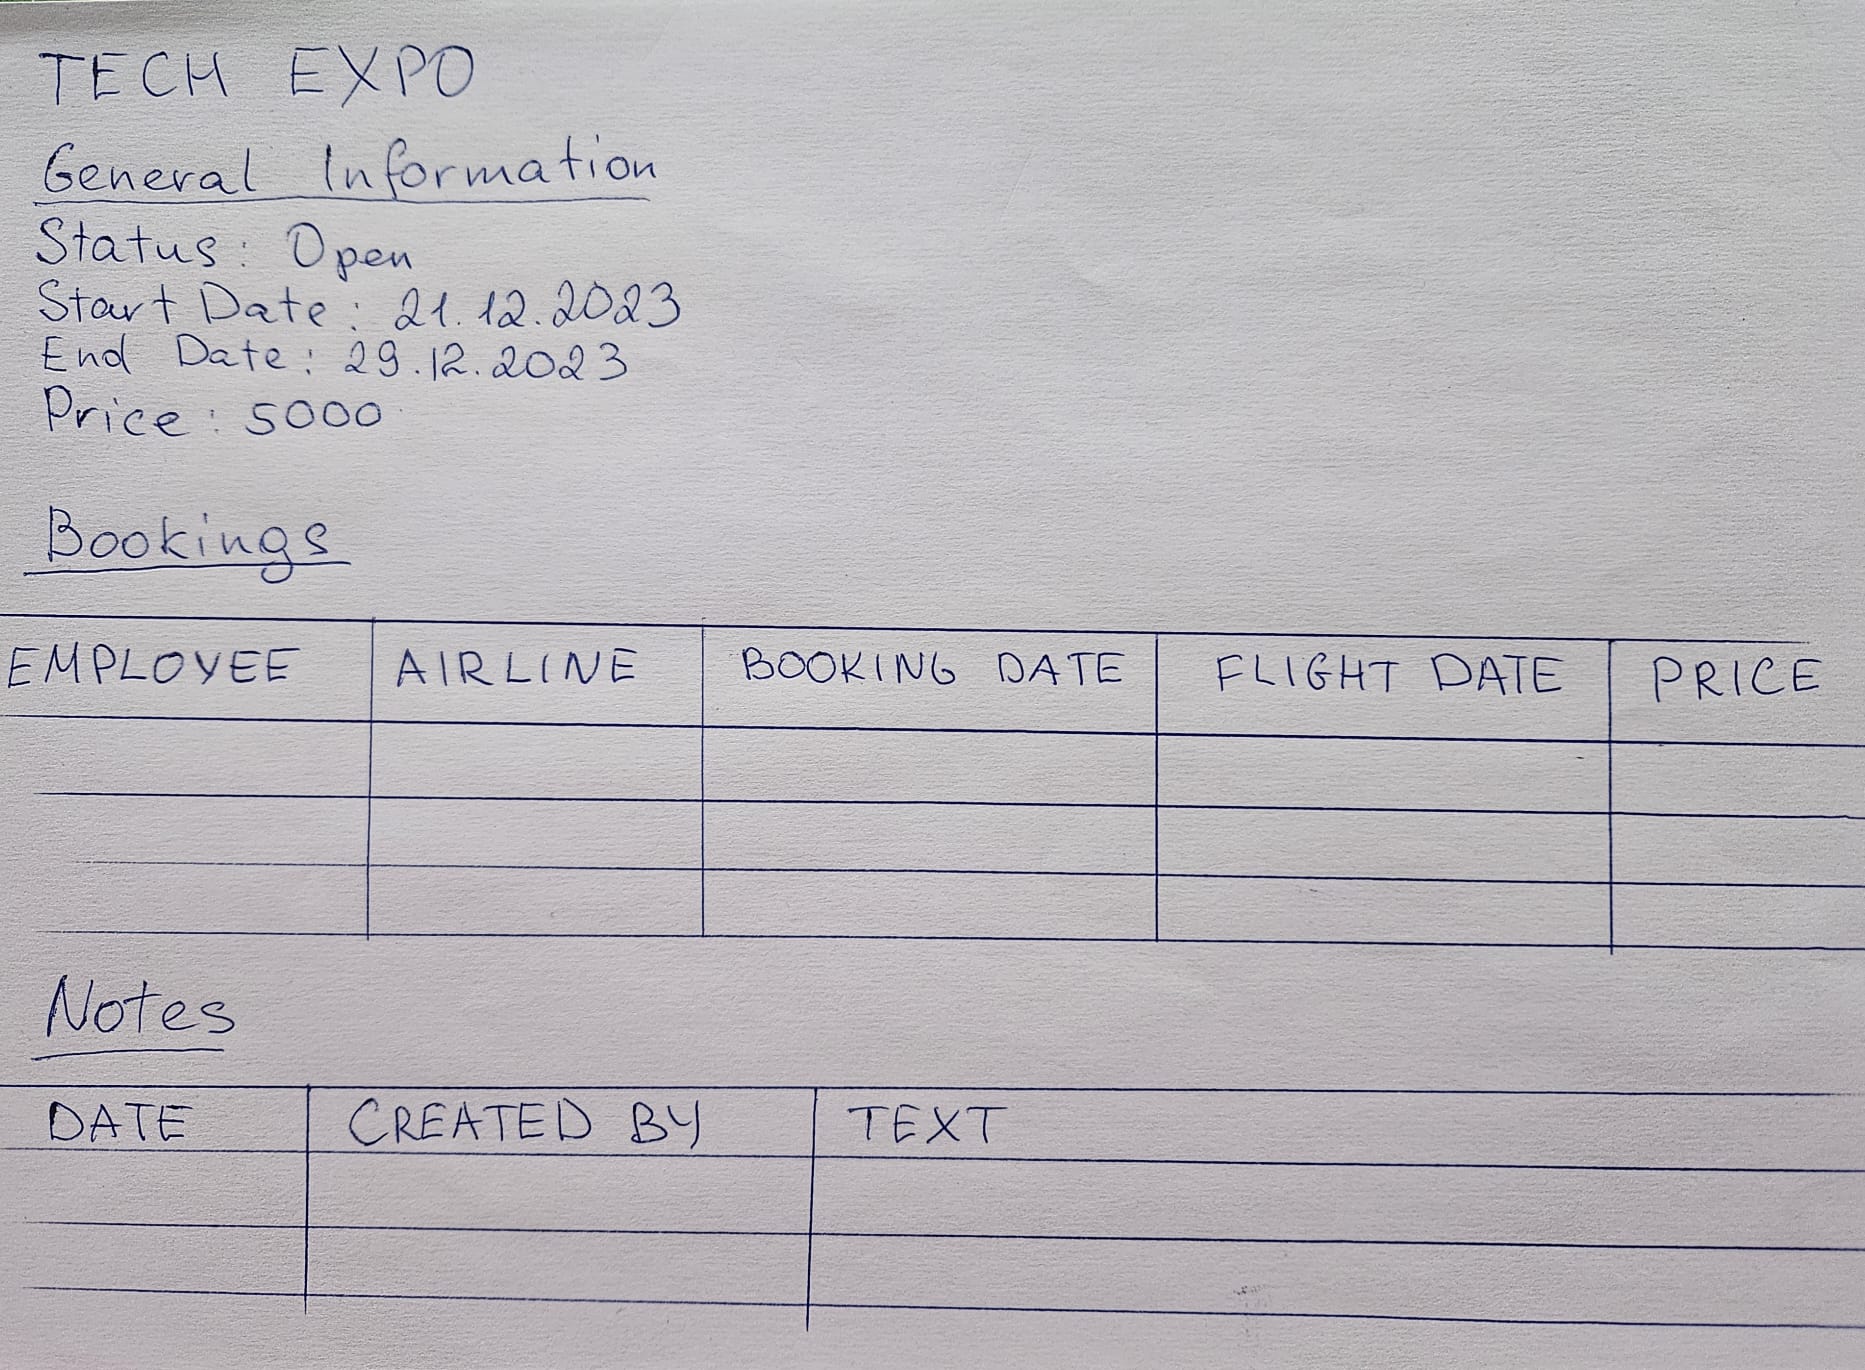 TECH EXPO
General Information
Status: Open
Start Date: 21.12.2023
End Date: 29.12.2023
Price: 5000
Bookings
EMPLOYEE AIRLINE BOOKING DATE FLIGHT DATE PRICE
Notes
DATE CREATED BY TEXT